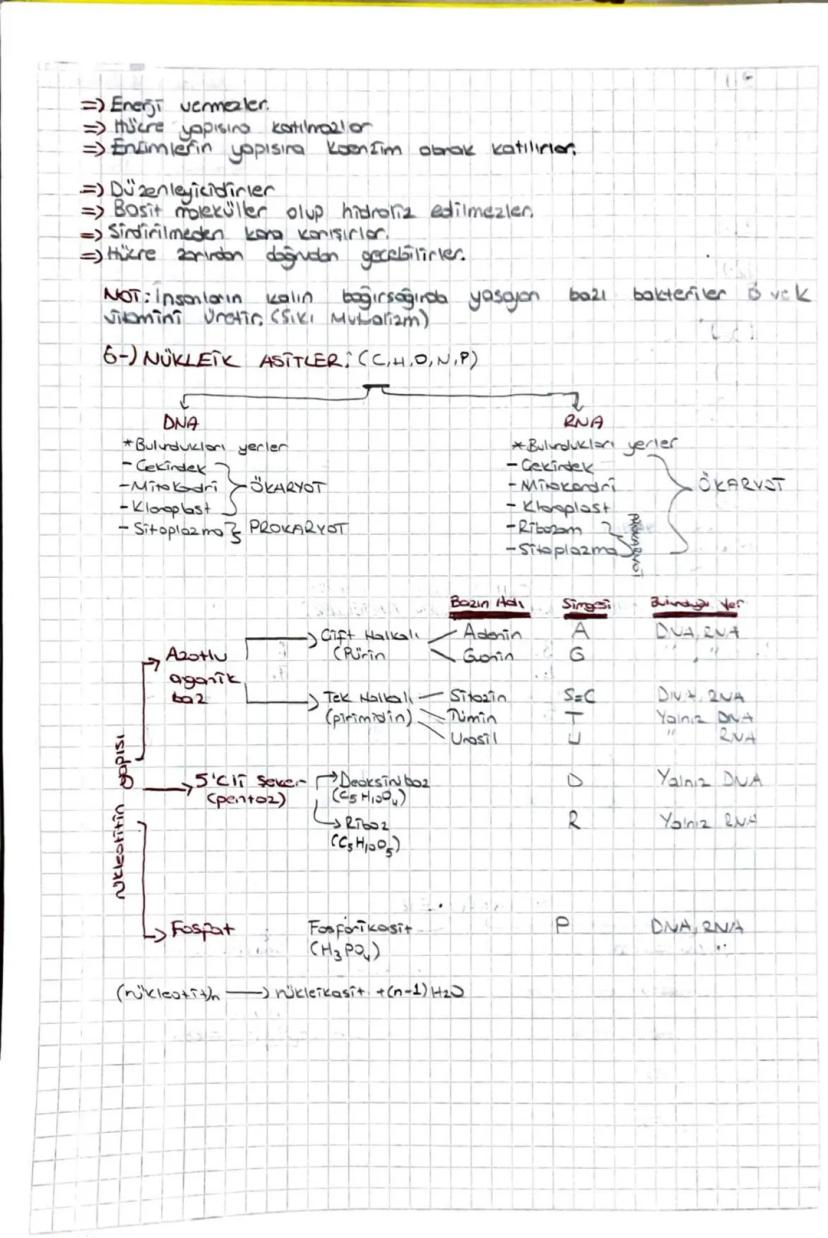 => Enerji vermezler.
=> Hücre yapısına katılmazlar
=> Enzimlerin yapısına koenzim olarak katılırlar.
=> Düzenleyicidirler
=> Basit moleküller olup hidroliz edilmezler.
=> Sindirilmeden kana karışırlar.
=> Hücre zarından doğrudan geçebilirler.
NOT: İnsanların kalın bağırsağında yaşayan bazı bakteriler B ve K
vitamini üretir. (Sıkı Mutualizm)
6-) NÜKLEİK ASİTLER: (C,H,O,N,P)
DNA
*Bulundukları yerler
- Çekirdek
- Mitokondri
- Kloroplast
ÖKARYOT
- Sitoplazma } PROKARYOT
RNA
*Bulundukları yerler
- Çekirdek
- Mitokondri
- Kloroplast
- Ribozom
- Sitoplazma
PROKARYOT
ÖKARYOT
Bazın Adı Simgesi Bulunduğu Yer
nükleotitin yapısı
Azotlu
organik
baz
Çift Halkalı
(Pürin
Adenin A DNA, RNA
Guanin G " , "
Tek Halkalı
(pirimidin)
Sitozin S=C DNA, RNA
Timin T Yalnız DNA
Urasil U " RNA
5'Cli Şeker
(pentoz)
Deoksiriboz D Yalnız DNA
(C5H10O4)
Riboz R Yalnız RNA
(C5H10O5)
Fosfat Fosforikasit P DNA, RNA
(H3PO4)
(nükleotit)n → nükleikasit + (n-1) H2O